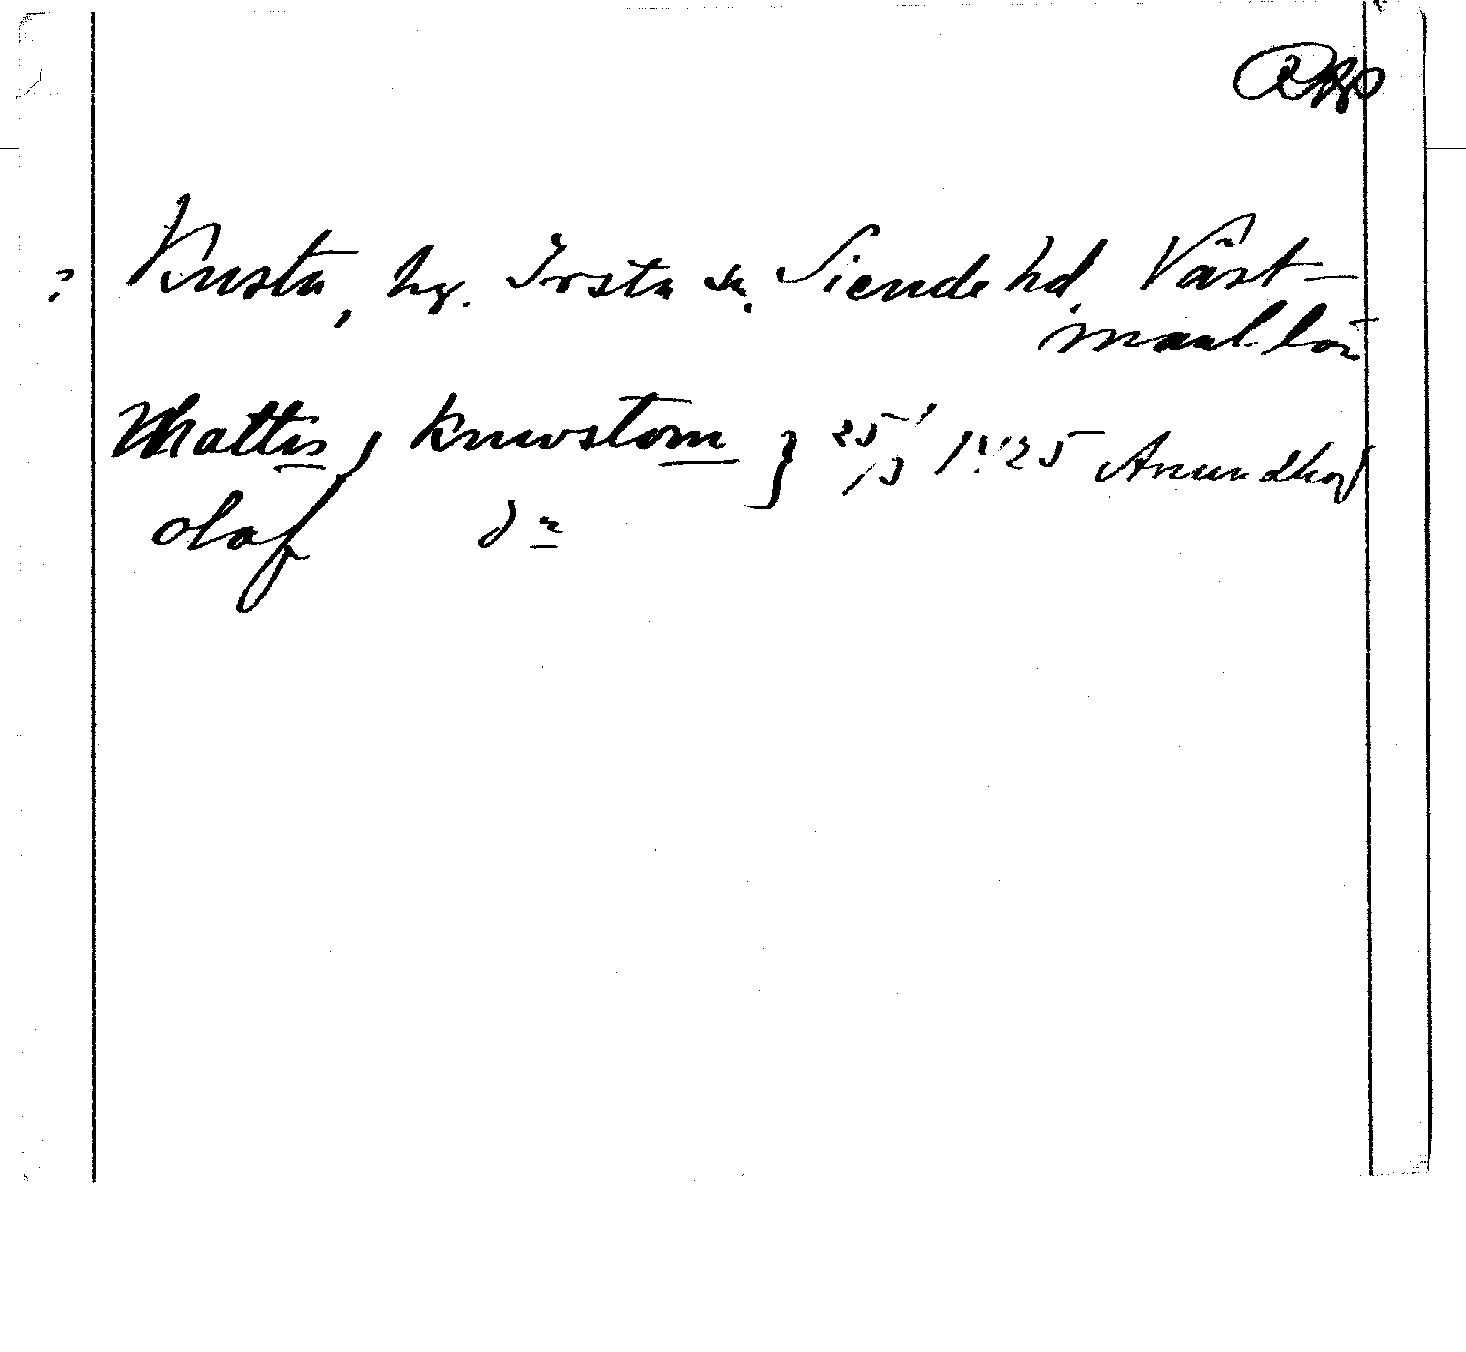 ? Knusta, hg. Irsta sn. Siende hd. Väst-
manl. län
Mattis, knwstom } 25/3 1425 Anundhof
Olaf do